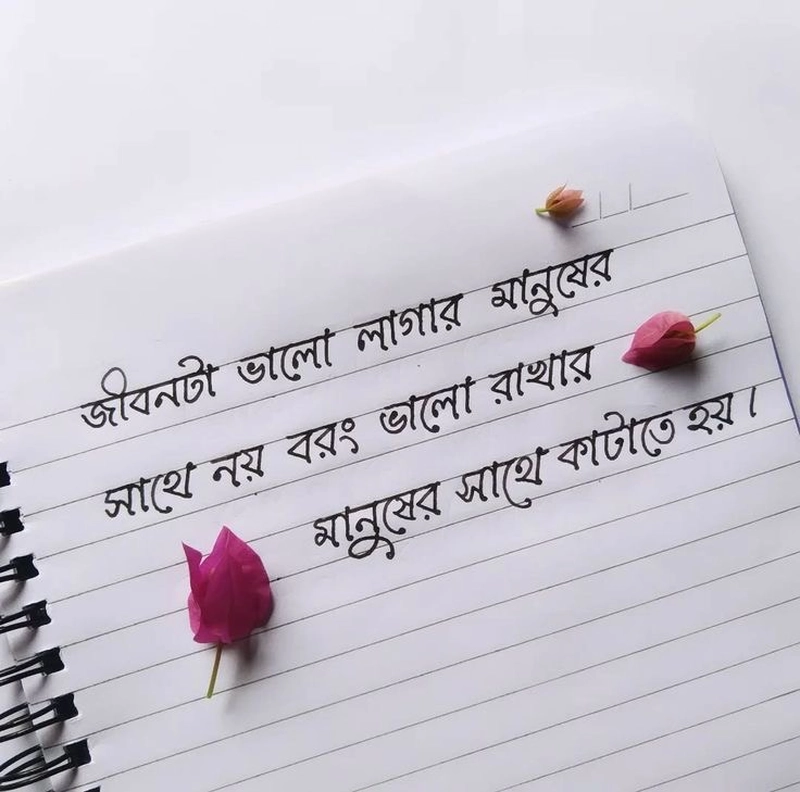 জীবনটা ভালো লাগার মানুষের
সাথে নয় বরং ভালো রাখার
মানুষের সাথে কাটাতে হয়।